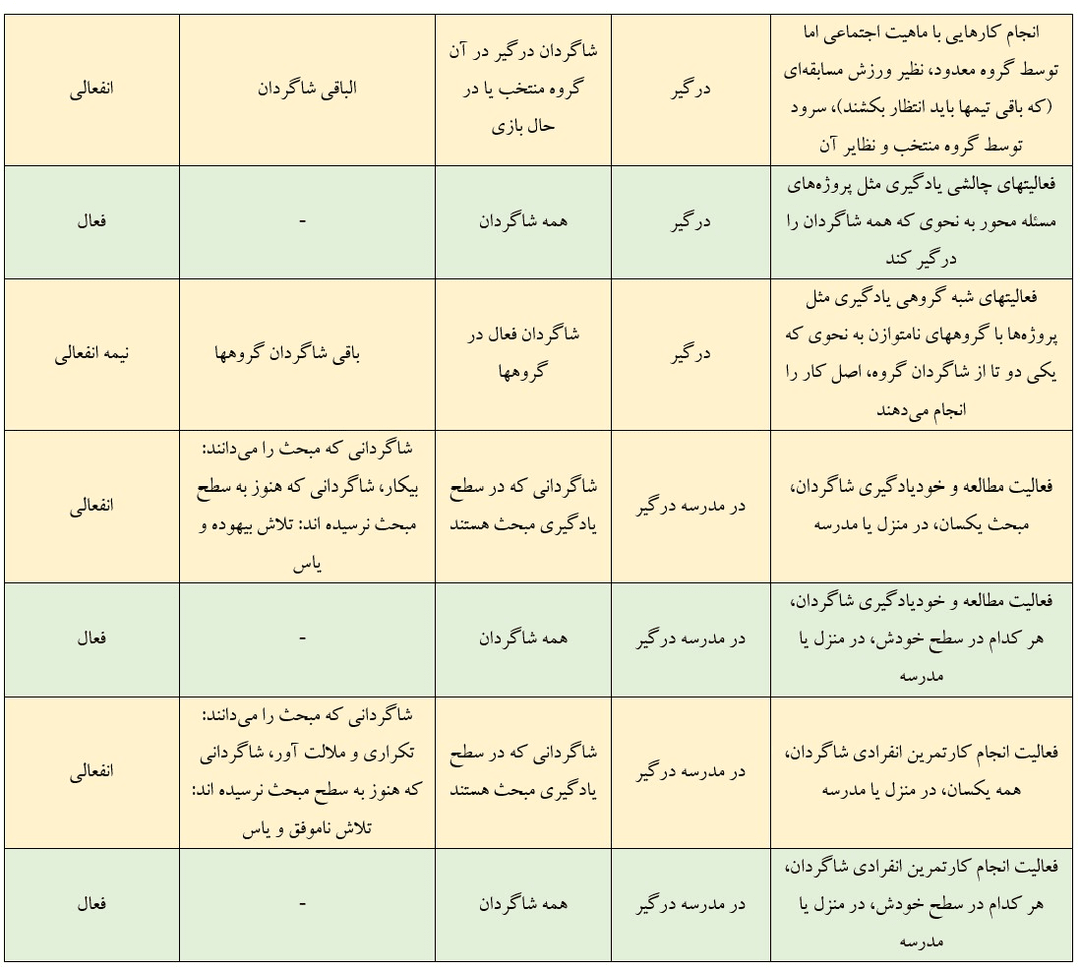 انجام کارهایی با ماهیت اجتماعی اما
توسط گروه معدود، نظیر ورزش مسابقه‌ای
(که باقی تیمها باید انتظار بکشند)، سرود
توسط گروه منتخب و نظایر آن
درگیر
شاگردان درگیر در آن
گروه منتخب یا در
حال بازی
الباقی شاگردان
انفعالی
فعالیتهای چالشی یادگیری مثل پروژه‌های
مسئله محور به نحوی که همه شاگردان را
درگیر کند
درگیر
همه شاگردان
-
فعال
فعالیتهای شبه گروهی یادگیری مثل
پروژه‌ها با گروههای نامتوازن به نحوی که
یکی دو تا از شاگردان گروه، اصل کار را
انجام می‌دهند
درگیر
شاگردان فعال در
گروهها
باقی شاگردان گروهها
نیمه انفعالی
فعالیت مطالعه و خودیادگیری شاگردان،
مبحث یکسان، در منزل یا مدرسه
در مدرسه درگیر
شاگردانی که در سطح
یادگیری مبحث هستند
شاگردانی که مبحث را می‌دانند:
بیکار، شاگردانی که هنوز به سطح
مبحث نرسیده اند: تلاش بیهوده و
یاس
انفعالی
فعالیت مطالعه و خودیادگیری شاگردان،
هر کدام در سطح خودش، در منزل یا
مدرسه
در مدرسه درگیر
همه شاگردان
-
فعال
فعالیت انجام کارتمرین انفرادی شاگردان،
همه یکسان، در منزل یا مدرسه
در مدرسه درگیر
شاگردانی که در سطح
یادگیری مبحث هستند
شاگردانی که مبحث را می‌دانند:
تکراری و ملالت آور، شاگردانی
که هنوز به سطح مبحث نرسیده اند:
تلاش ناموفق و یاس
انفعالی
فعالیت انجام کارتمرین انفرادی شاگردان،
هر کدام در سطح خودش، در منزل یا
مدرسه
در مدرسه درگیر
همه شاگردان
-
فعال